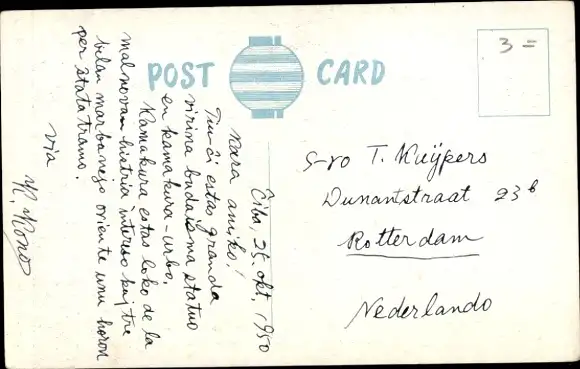 POST CARD
3=
Ĉiba, 25, okt. 1950
Kara amiko!
Tiu-ĉi estas granda
virina budaisma statuo
en Kamakura-urbo.
Kamakura estas loko de la
malnovan histria intereso kaj tre
belan marbanejo oriente unu horon
per ŝtata tramo.
via
K. Kono
S-ro T. Kuijpers
Dunantstraat 23b
Rotterdam
Nederlando